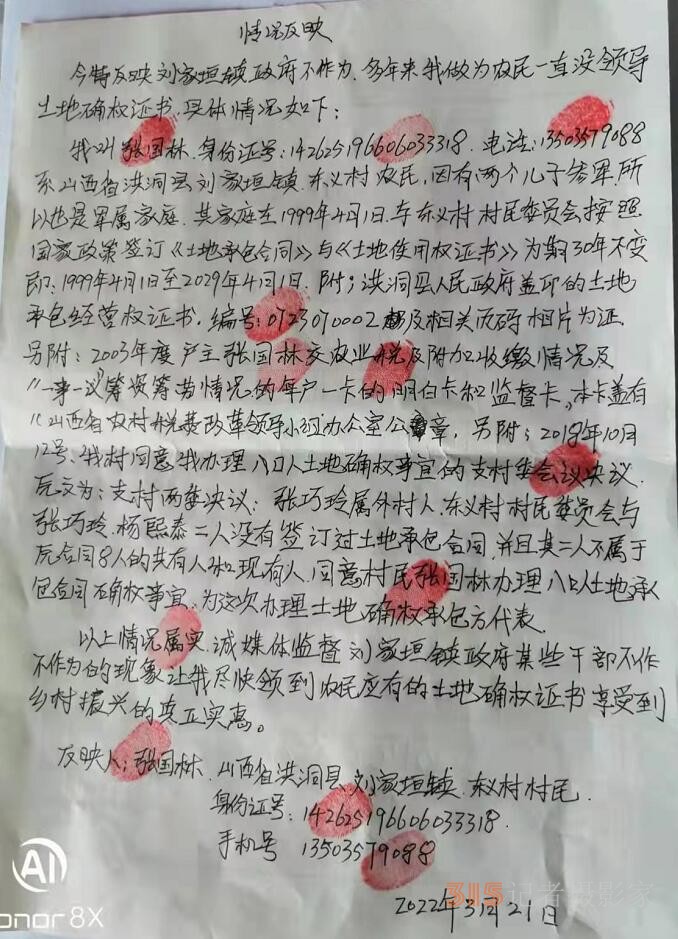 情况反映
今特反映刘家垣镇政府不作为.多年来我做为农民一直没领导
土地确权证书.具体情况如下:
我叫张国林.身份证号:142625196606033318.电话:13503579088
系山西省洪洞县刘家垣镇.东义村农民,因有两个儿子参军.所
以也是军属家庭.其家庭在1999年4月1日.与东义村村民委员会按照
国家政策签订《土地承包合同》与《土地使用权证书》为期30年不变
即:1999年4月1日至2029年4月1日.附:洪洞县人民政府盖印的土地
承包经营权证书.编号:0723070002 及相关页码相片为证.
另附:2003年度户主张国林交农业税及附加收缴情况及
"一事一议"筹资筹劳情况的每户一卡的明白卡和监督卡,本卡盖有
"山西省农村税费改革领导小组办公室公章,另附:2018年10月
12号、我村同意我办理八口人土地确权事宜的支村委会议决议.
原文为:支村两委决议:张巧玲属外村人.东义村村民委员会与
张巧玲.杨熙泰二人没有签订过土地承包合同.并且其二人不属于
原合同8人的共有人和现有人.同意村民张国林办理八口人土地承
包合同确权事宜.为这次办理土地确权承包方代表.
以上情况属实.诚媒体监督刘家垣镇政府某些干部不作
不作为的现象让我尽快领到农民应有的土地确权证书享受到
乡村振兴的真正实惠。
反映人:张国林.山西省洪洞县.刘家垣镇.东义村村民.
身份证号:142625196606033318.
手机号 13503579088
2022年3月21日
AI
onor 8X
315记者摄影家